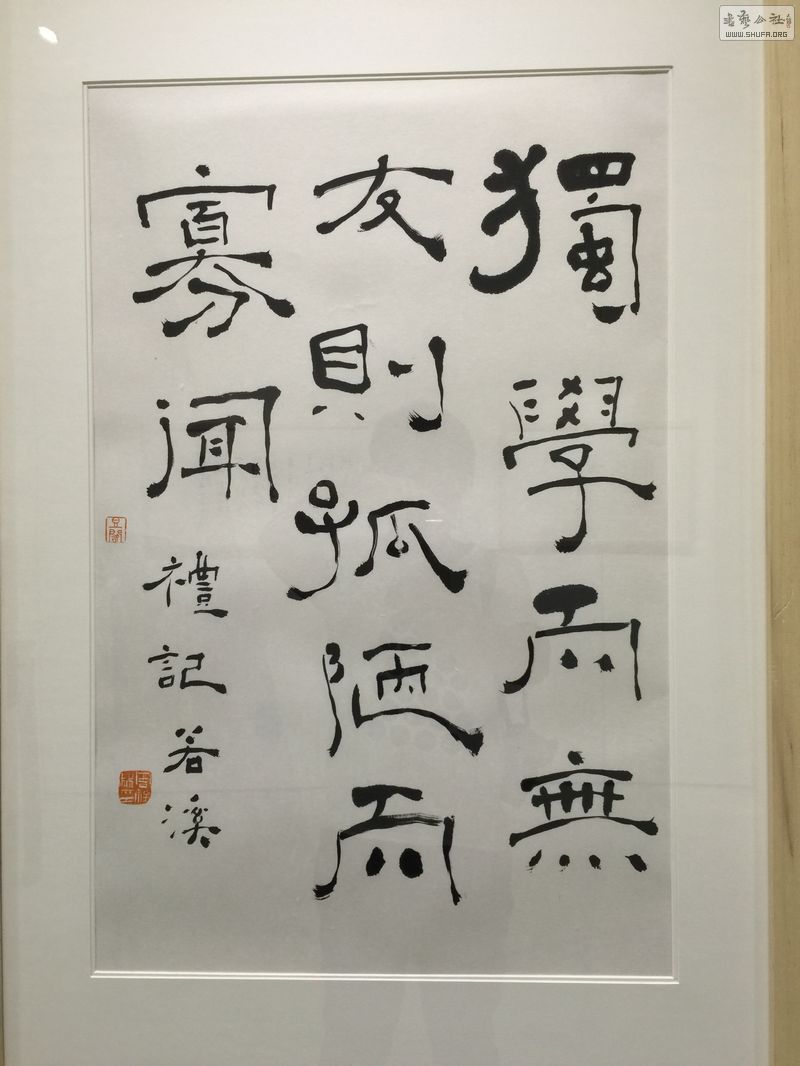 獨學而無
友則孤陋而
寡聞
禮記 若溪
書藝公社
WWW.SHUFA.ORG